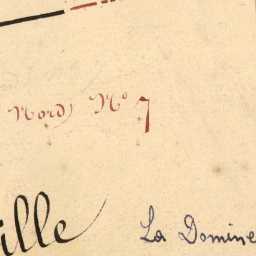 Nord) N° 7
ille
La Domine